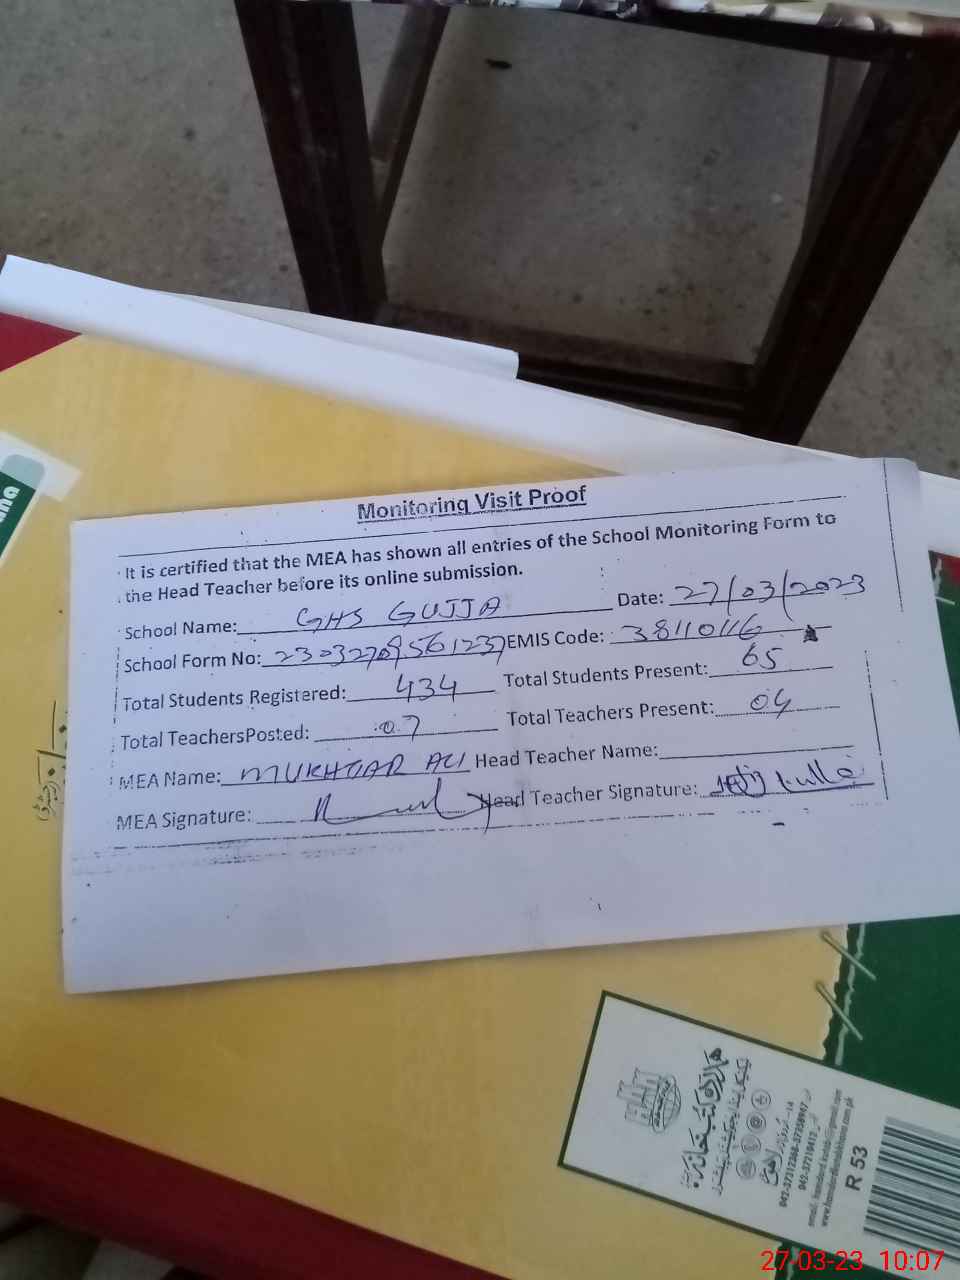 Monitoring Visit Proof
It is certified that the MEA has shown all entries of the School Monitoring Form to
the Head Teacher before its online submission.
School Name: GHS GUJJA Date: 27/03/2023
School Form No: 23032709561237 EMIS Code: 38110116
Total Students Registered: 434 Total Students Present: 65
Total TeachersPosted: 07 Total Teachers Present: 04
MEA Name: MUKHTAR ALI Head Teacher Name:
MEA Signature: Head Teacher Signature:
ana
ہمدرد کتب خانہ
لاہور
042-37312368-37358947
R 53
27-03-23 10:07